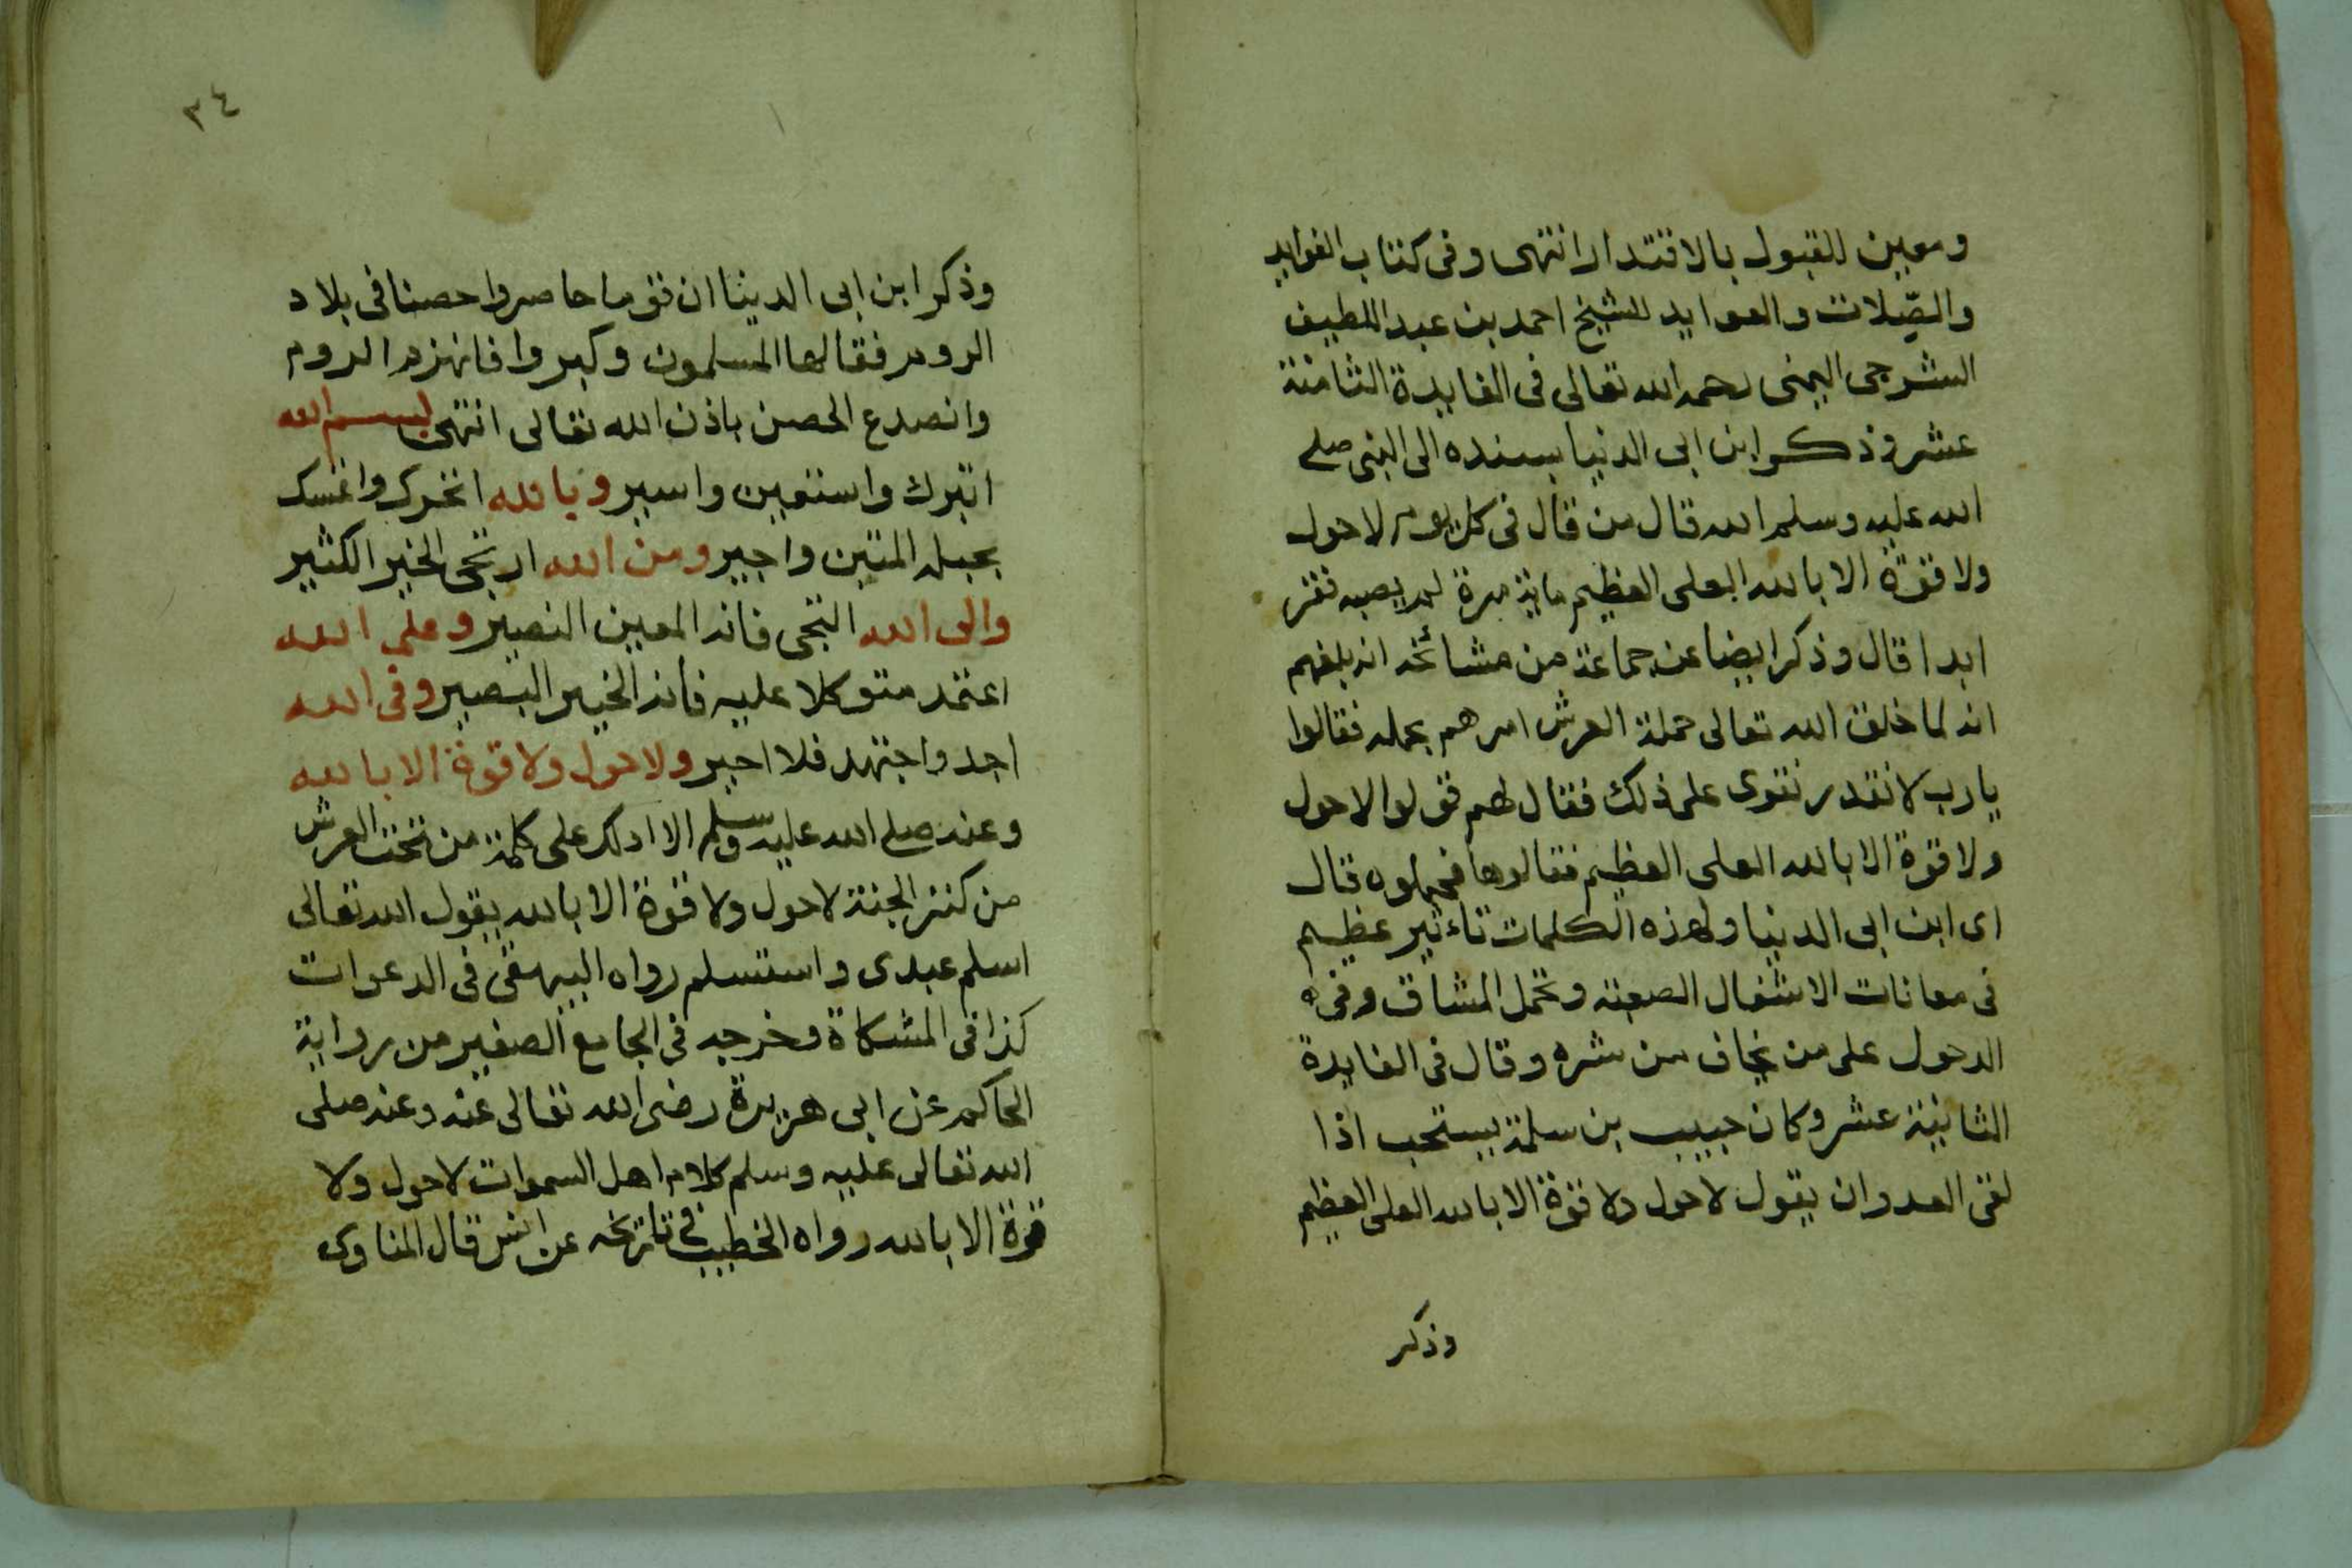 ومعين للقبول بالاقتدار انتهى وفى كتاب الفوايد
والصّلات والعوايد للشيخ احمد بن عبد اللطيف
الشرجى اليمنى رحمه الله تعالى فى الفايدة الثامنة
عشر وذكر ابن ابى الدنيا بسنده الى النبى صلى
الله عليه وسلم انه قال من قال فى كل يوم لا حول
ولا قوّة الا بالله العلى العظيم ماية مرة لم يصبه فقر
ابدا قال وذكر ايضا عن جماعة من مشائخه انه بلغهم
انه لما خلق الله تعالى حملة العرش امرهم بحمله فقالوا
يا رب لا نقدر نقوى على ذلك فقال لهم قولوا لا حول
ولا قوة الا بالله العلى العظيم فقالوها فحملوه قال
اى ابن ابى الدنيا ولهذه الكلمات تاءثير عظيم
فى معانات الاشغال الصعبة وتحمل المشاق وفى
الدخول على من يخاف من شره وقال فى الفايدة
الثانية عشر وكان حبيب بن سلمة يستحب اذا
لقى العدو ان يقول لا حول ولا قوة الا بالله العلى العظيم
وذكر
٣٤
وذكر ابن ابى الدينا ان قوما حاصروا حصنا فى بلاد
الروم فقالها المسلمون وكبروا فانهزم الروم
وانصدع الحصن باذن الله تعالى انتهى بسم الله
اتبرك واستعين واسير وبالله اتحرك واتمسك
بحبله المتين واجير ومن الله ارتجى الخير الكثير
والى الله التجى فانه المعين النصير وعلى الله
اعتمد متوكلا عليه فانه الخبير البصير وفى الله
اجد واجتهد فلا احير ولا حول ولا قوة الا بالله
وعنه صلى الله عليه وسلم الا ادلك على كلمة من تحت العرش
من كنز الجنة لا حول ولا قوة الا بالله يقول الله تعالى
اسلم عبدى واستسلم رواه البيهقى فى الدعوات
كذا فى المشكاة وخرجه فى الجامع الصغير من رواية
الحاكم عن ابى هريرة رضى الله تعالى عنه وعنه صلى
الله تعالى عليه وسلم كلام اهل السموات لا حول ولا
قوة الا بالله رواه الخطيب فى تاريخه عن انس قال المناوى